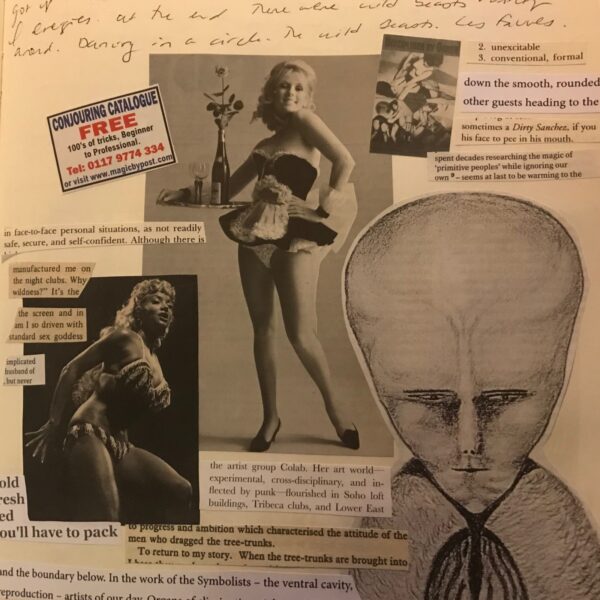 got up
of energies. at the end There were wild beasts
award. Dancing in a circle. The wild beasts. Les Fauves.
CONJOURING CATALOGUE
FREE
100's of tricks, Beginner
to Professional.
Tel: 0117 9774 334
or visit www.magicbypost.com
2. unexcitable
3. conventional, formal
down the smooth, rounded
other guests heading to the
sometimes a Dirty Sanchez, if you
his face to pee in his mouth.
spent decades researching the magic of
'primitive peoples' while ignoring our
own – seems at last to be warming to the
in face-to-face personal situations, as not readily
safe, secure, and self-confident. Although there is
manufactured me on
the night clubs. Why
wildness?" It's the
the screen and in
am I so driven with
standard sex goddess
implicated
husband of
, but never
the artist group Colab. Her art world—
experimental, cross-disciplinary, and in-
flected by punk—flourished in Soho loft
buildings, Tribeca clubs, and Lower East
old
resh
ed
ou'll have to pack
to progress and ambition which characterised the attitude of the
men who dragged the tree-trunks.
To return to my story. When the tree-trunks are brought into
and the boundary below. In the work of the Symbolists – the ventral cavity,
reproduction – artists of our day. Organs of